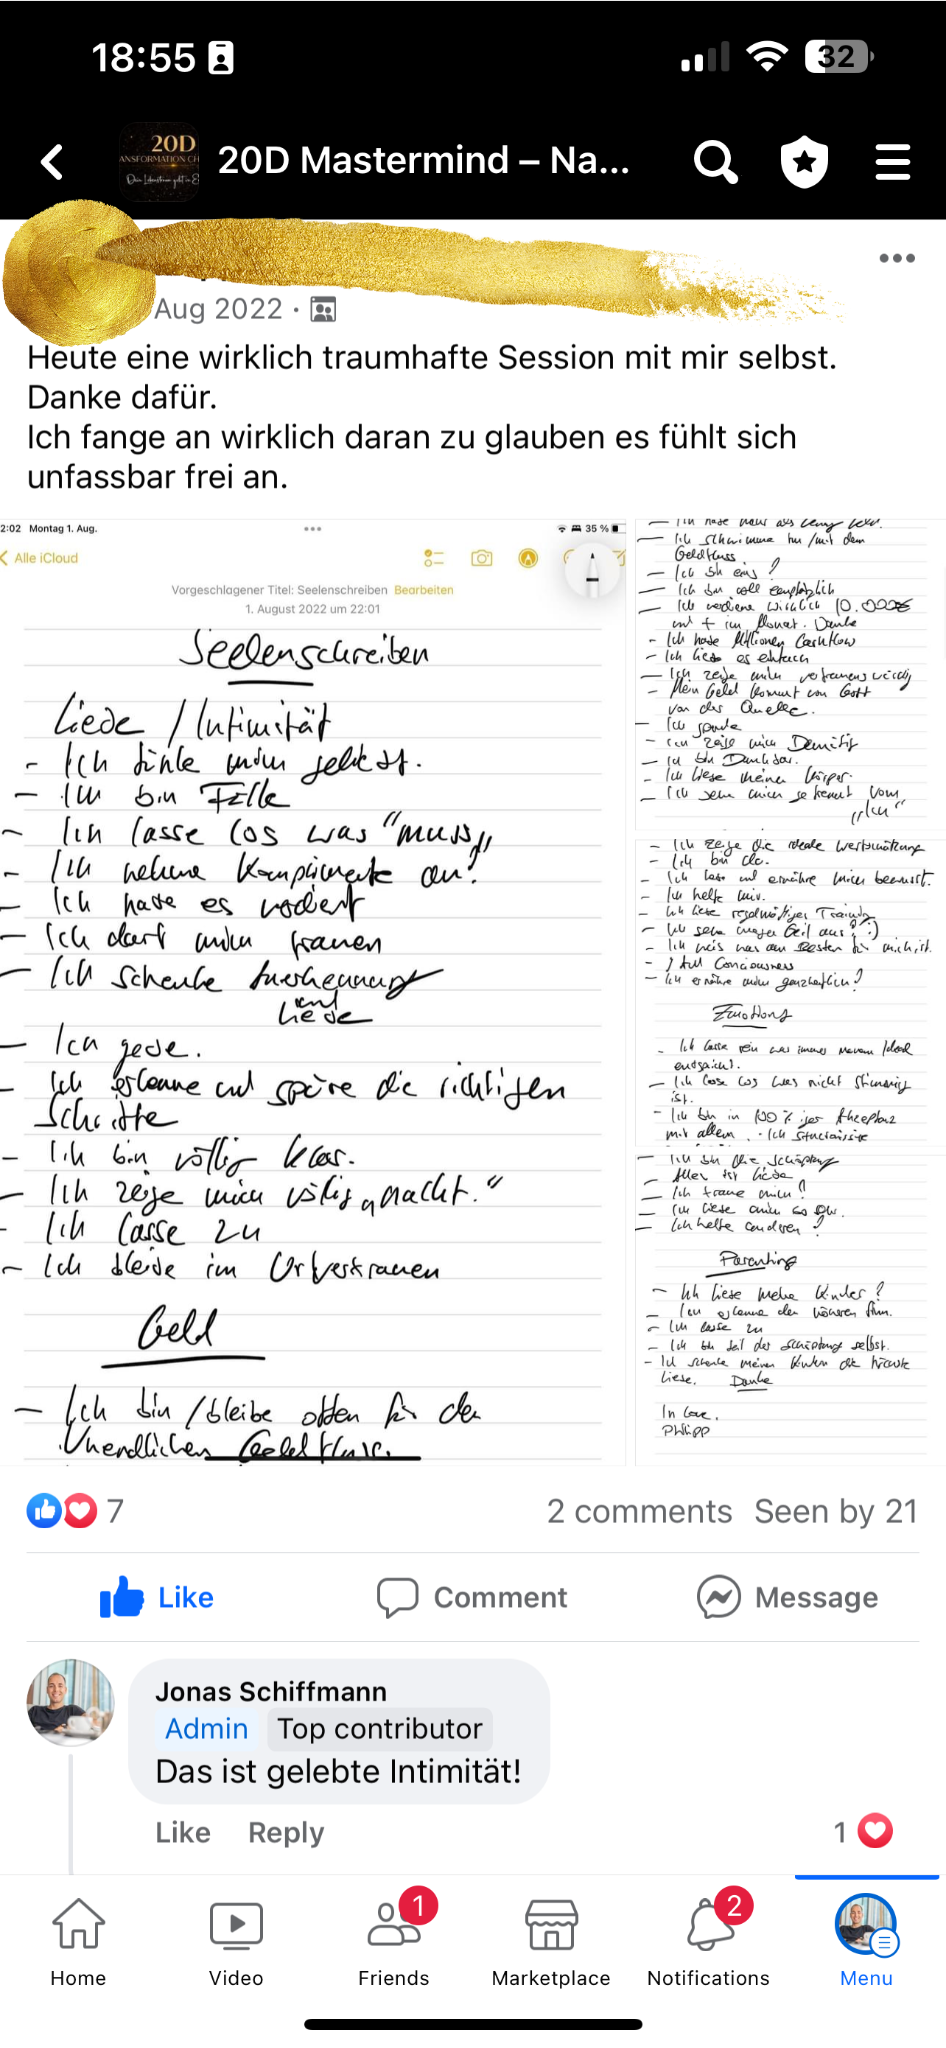 18:55
32
20D
ANSFORMATION CH
20D Mastermind – Na...
Aug 2022 ·
Heute eine wirklich traumhafte Session mit mir selbst.
Danke dafür.
Ich fange an wirklich daran zu glauben es fühlt sich
unfassbar frei an.
2:02 Montag 1. Aug.
35 %
Alle iCloud
Vorgeschlagener Titel: Seelenschreiben Bearbeiten
1. August 2022 um 22:01
Seelenschreiben
Liebe / Intimität
- Ich fühle mich geliebt.
- Ich bin Fülle
- Ich lasse los was "muss"
- Ich nehme Komplimente an!
- Ich habe es verdient
- Ich darf mich trauen
- Ich schenke Anerkennung
und
Liebe
- Ich gebe.
- Ich erkenne und spüre die richtigen
Schritte
- Ich bin völlig klar.
- Ich zeige mich völlig „nackt."
- Ich lasse zu
- Ich bleibe im Urvertrauen
Geld
- Ich bin / bleibe offen für den
Unendlichen Geldfluss.
- Ich schwimme im / mit dem
Geldfluss
- Ich bin eins!
- Ich bin voll empfänglich
- Ich verdiene wirklich 10.000€
und + im Monat. Danke
- Ich habe Millionen Cashflow
- Ich liebe es einfach
- Ich zeige mich vertrauenswürdig
- Mein Geld kommt von Gott
von der Quelle.
- Ich spende
- Ich zeige mich Demütig
- Ich bin Dankbar.
- Ich liebe meinen Körper.
- Ich sehe mich getrennt vom
„Ich"
- Ich zeige die ideale Wertschätzung
- Ich bin da.
- Ich lebe und ernähre mich bewusst.
- Ich helfe mir.
- Ich liebe regelmäßiges Training
- Ich sehe mega Geil aus! :)
- Ich weis was am Besten für mich ist.
- I full Conciousness
- Ich ernähre mich ganzheitlich!
Emotions
- Ich lasse rein was immer meinem Ideal
entspricht.
- Ich lasse los was nicht stimmig
ist.
- Ich bin in 100%iger Akzeptanz
mit allem.
- Ich bin die Schöpfung
- Alles ist Liebe
- Ich traue mich!
- Ich liebe mich so
- Ich helfe anderen!
Parenting
- Ich liebe meine Kinder!
- Ich erkenne den höheren Sinn.
- Ich lasse zu
- Ich bin teil der Schöpfung selbst.
- Ich schenke meinen Kindern die höchste
Liebe. Danke
In Love,
Philipp
7
2 comments Seen by 21
Like
Comment
Message
Jonas Schiffmann
Admin Top contributor
Das ist gelebte Intimität!
Like Reply
1
1
2
Home
Video
Friends
Marketplace
Notifications
Menu